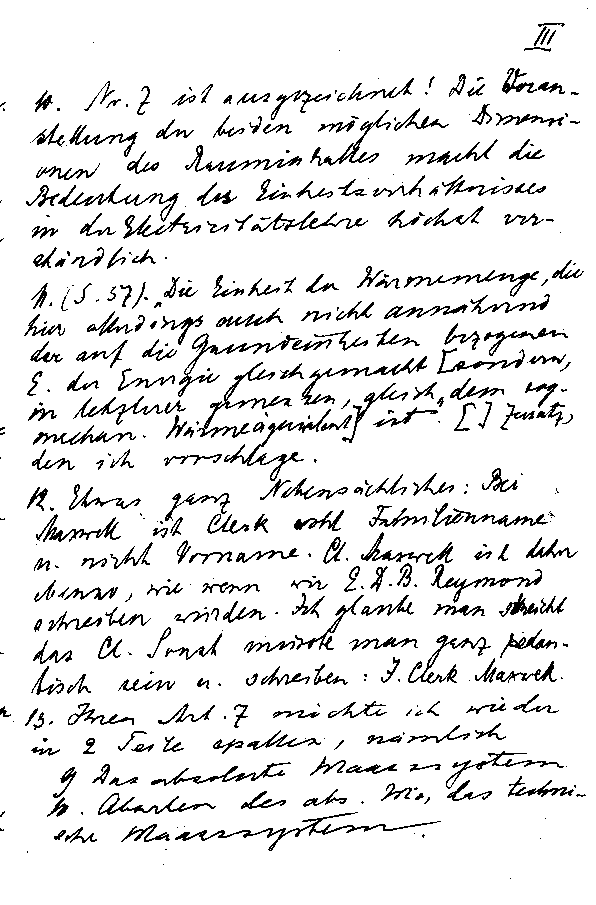 III
10. Nr. 7 ist ausgezeichnet! Die Voran-
stellung der beiden möglichen Dimensi-
onen des Rauminhaltes macht die
Bedeutung des Einheitsverhältnisses
in der Electricitätslehre höchst ver-
ständlich.
11. (S. 57). „Die Einheit der Wärmemenge, die
hier allerdings auch nicht annähernd
der auf die Grundeinheiten bezogenen
E. der Energie gleichgemacht [sondern,
in letzterer gemessen, gleich „dem sog.
mechan. Wärmeäquivalent] ist". [ ] Zusatz,
den ich vorschlage.
12. Etwas ganz Nebensächliches: Bei
Maxwell ist Clerk wohl Familienname
u. nicht Vorname. Cl. Maxwell ist daher
ebenso, wie wenn wir E. D. B. Reymond
schreiben würden. Ich glaube man streicht
das Cl. Sonst müsste man ganz pedan-
tisch sein u. schreiben: J. Clerk Maxwell.
13. Ihren Art. 7 möchte ich wieder
in 2 Teile spalten, nämlich
9 Das absolute Maasssystem
10. Abarten des abs. Ms, das techni-
sche Maasssystem.